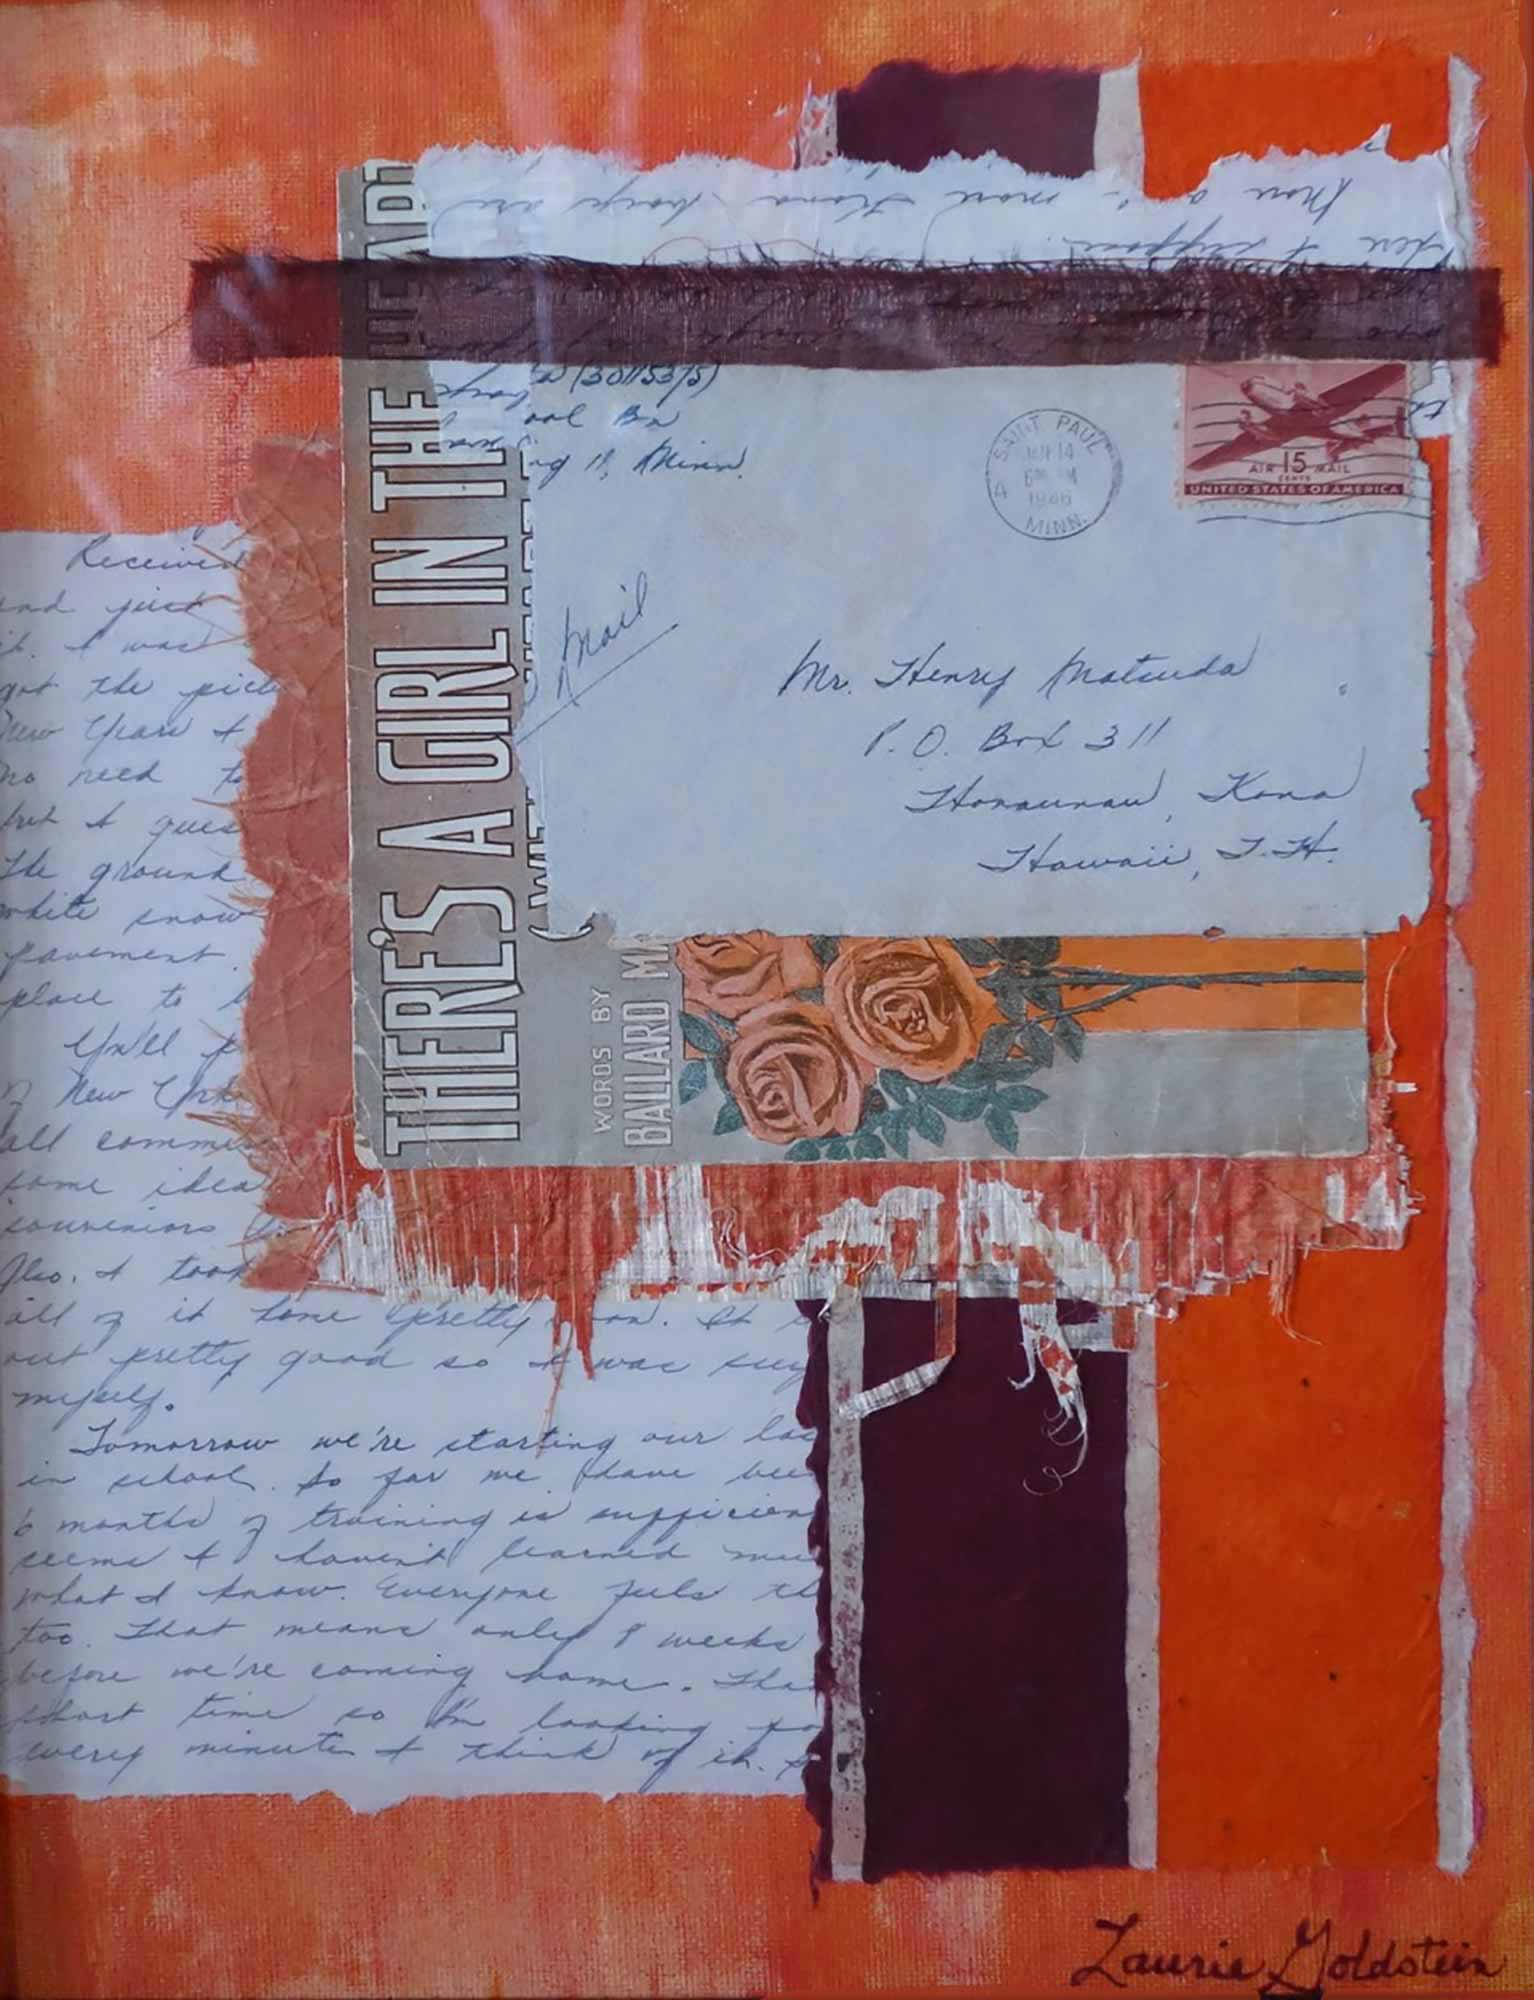 Now a's more Kona boys are
here I suppose.
(30115375)
ool Bn
ng 11, Minn.
SAINT PAUL
JAN 14
1946
MINN.
4
AIR 15 MAIL
CENTS
UNITED STATES OF AMERICA
Mail
Mr. Henry Matsuda
P. O. Box 311
Honaunau, Kona
Hawaii, T.H.
THERE'S A GIRL IN THE HEART
WORDS BY
BALLARD MA
Received
and just
it. I was
got the pict
New Years &
no need to
but I gues
the ground
white snow
pavement.
place to
You'll
of New York
all comme
some idea
souveniors
Also, I took
all of it home pretty soon. It
out pretty good so I was
myself.
Tomorrow we're starting our las
in school. So far we have bee
6 months of training is sufficien
seems I haven't learned mu
what I know. Everyone feels th
too. That means only 8 weeks
before we're coming home. Tha
short time so I'm looking fo
every minute I think of it.
Laurie Goldstein